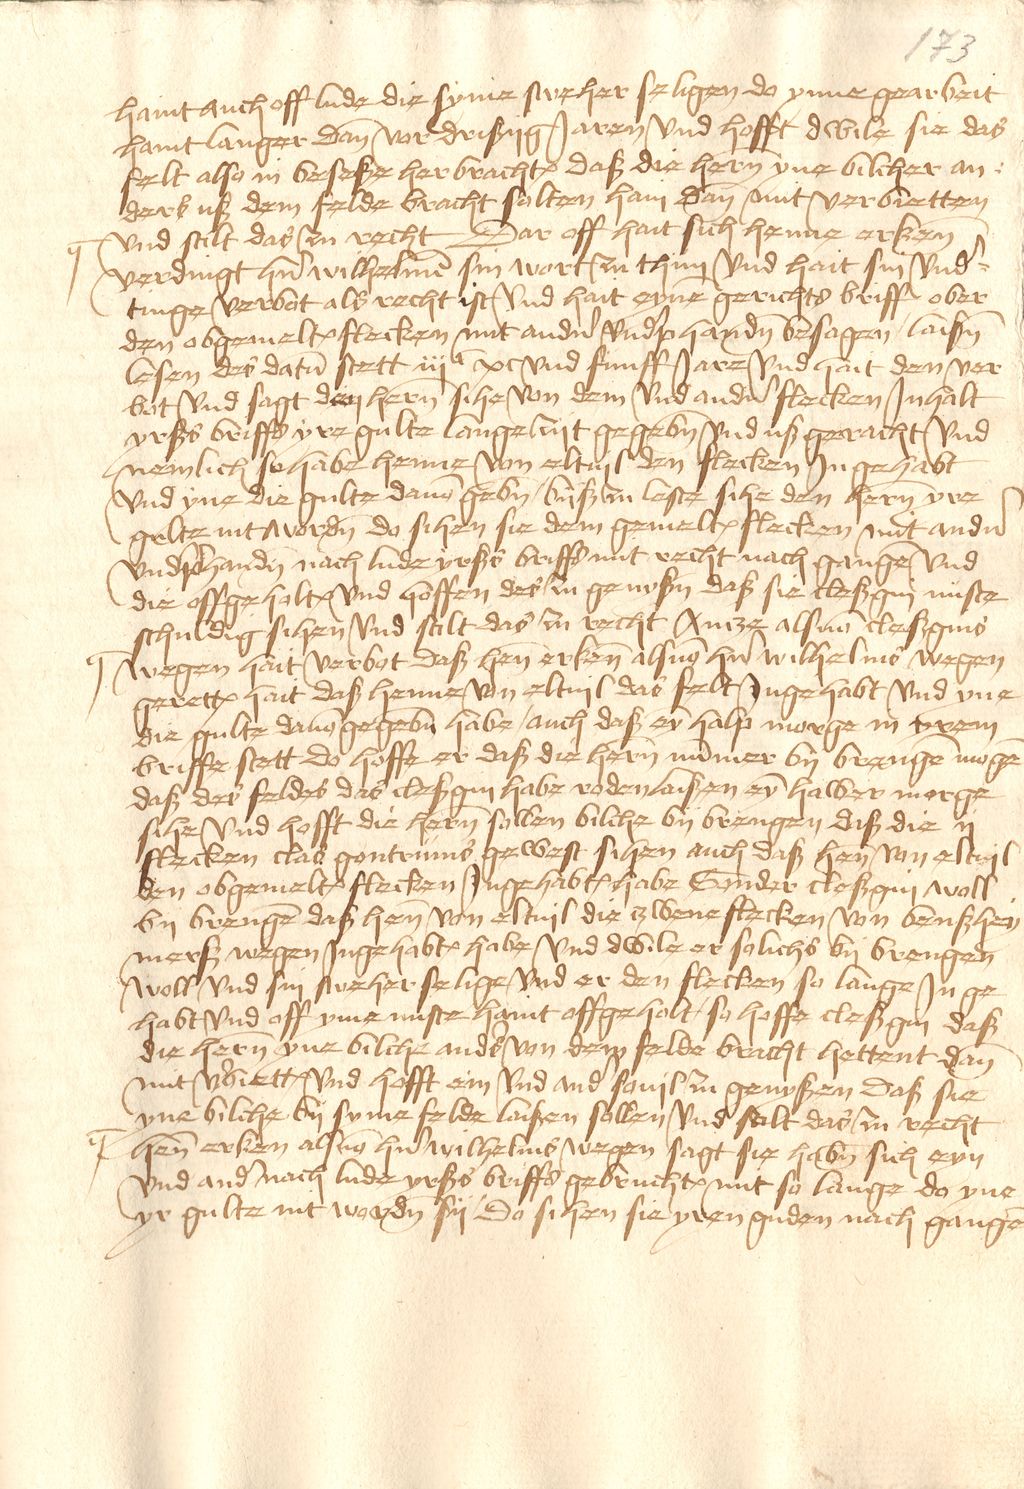 173
haint auch off lude die syme sweher seligen do ynne gearbeit
haint langer dan vor drissyg Jaren vnd hofft dwile sie das
felt also in besesse herbracht daß die hern yne bilcher an
ders uß dem felde bracht solten han dan mit verbietten
vnd stilt das zu recht Dar off hait sich henne erken
verdingt hern wilhelmen sin wort zu thun vnd hait sin vnder
tinge verbot als recht ist vnd hait eyne gerichts briff ober
den obgemelt flecken mit andern vnderphanden besagen laißen
lesen des datum stett iiijc xc vnd funff Jare vnd hait den ver
bot vnd sagt den hern sihe von dem vnd andern flecken Inhalt
yrßs briffs yre gulte lange zijt gegeben vnd ußgeracht vnd
nemlich so habe henne von eltuil den flecken Ingehabt
vnd yne die gulte dauon geben biß zu leste sihe den hern yre
gulte nit worden do sihen sie dem gemelt flecken mit andern
vnderphanden nach lude yrßs briffs mit recht nach gangen vnd
die offgeholt vnd hoffen des zu genyßen daß sie cleßgin nuste
schuldig sihen vnd stilt das zu recht Antze als von cleßgins
wegen hait verbot daß hen erken als von hern wilhelms wegen
gerett hait daß henne von eltuil das felt Ingehabt vnd yne
die gulte dauon gegeben habe auch daß ey halp morge in yrem
briffe stett do hoffe er daß die hern nummer by brengen mogen
daß des feldes das cleßgin habe roden laißen ey halber morge
sihe vnd hofft die hern sollen bilche by brengen daß die ij
flecken clas gontrums gewest sihen auch daß hen von eltuil
den obgemelt flecken Ingehabt habe Sunder cleßgin woll
by brengen daß hen von eltuil die zwene flecken von benßhey
merß wegen Ingehabt habe vnd dwile er solichs by brengen
woll vnd sin sweher selige vnd er den flecken so lange In ge
habt vnd off yme nuste haint offgeholt so hoffe cleßgin daß
die hern yne bilche anders von dem felde bracht hettent dan
mit verbiett vnd hofft ein vnd ander souil zu genyßen daß sie
yne bilche by syme felde laißen sollen vnd stilt das zu recht
hen erken als von hern wilhelms wegen sagt sie haben sich eyn
vnd ander nach lude yrßs briffs gebrucht mit so lange do yne
yr gulte nit worden sy Do sihen sie yren guden nach gangen